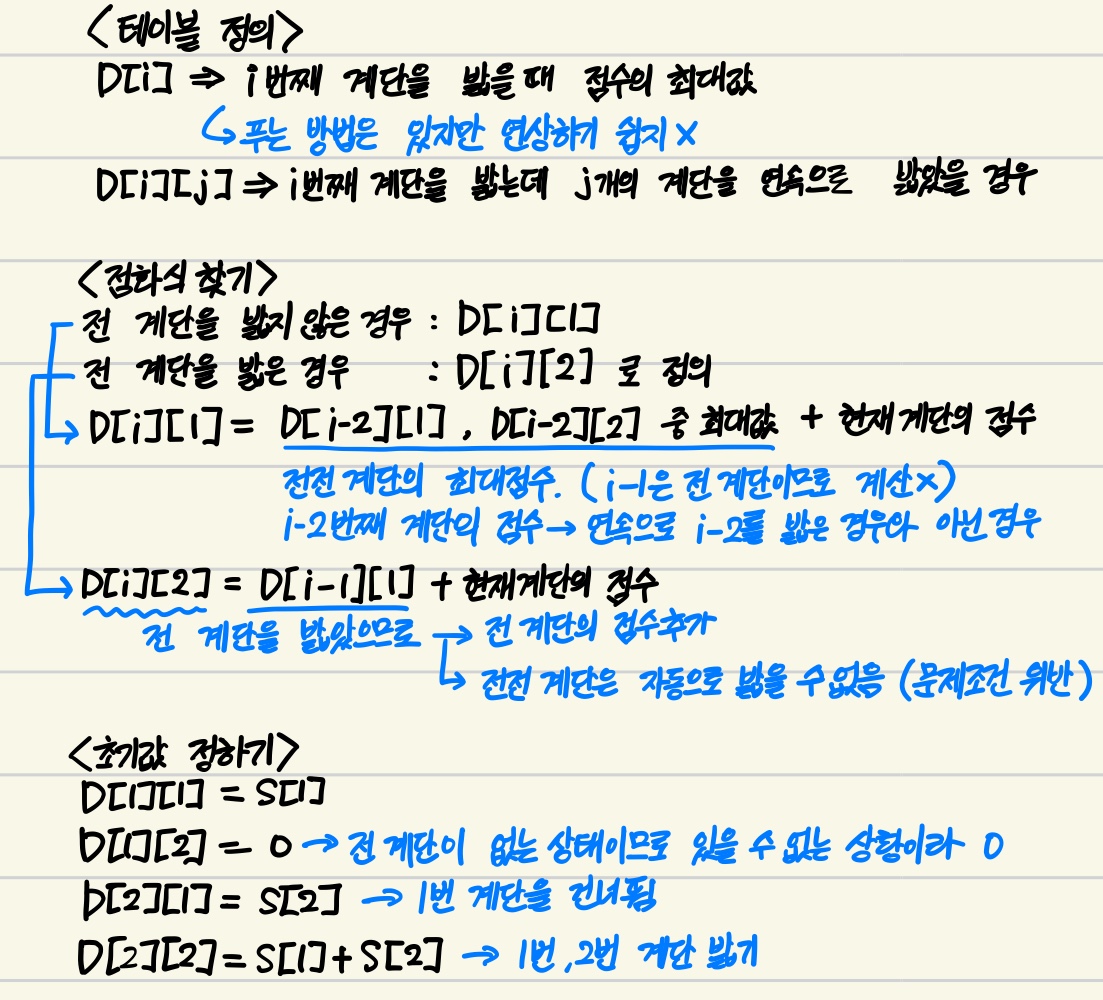 <테이블 정의>
D[i] ⇒ i번째 계단을 밟을 때 점수의 최대값
↳푸는 방법은 있지만 연상하기 쉽지 X
D[i][j] ⇒ i번째 계단을 밟는데 j개의 계단을 연속으로 밟았을 경우
<점화식 찾기>
전 계단을 밟지 않은 경우 : D[i][1]
전 계단을 밟은 경우 : D[i][2] 로 정의
D[i][1] = D[i-2][1], D[i-2][2] 중 최대값 + 현재 계단의 점수
전전 계단의 최대점수. (i-1은 전 계단이므로 계산X)
i-2번째 계단의 점수→ 연속으로 i-2를 밟은 경우와 아닌 경우
D[i][2] = D[i-1][1] + 현재계단의 점수
전 계단을 밟았으므로 → 전 계단의 점수추가
↳ 전전 계단은 자동으로 밟을 수 없음 (문제조건 위반)
<초기값 정하기>
D[1][1] = S[1]
D[1][2] = 0 → 전 계단이 없는 상태이므로 있을 수 없는 상황이라 0
D[2][1] = S[2] → 1번 계단을 건너뜀
D[2][2] = S[1] + S[2] → 1번, 2번 계단 밟기